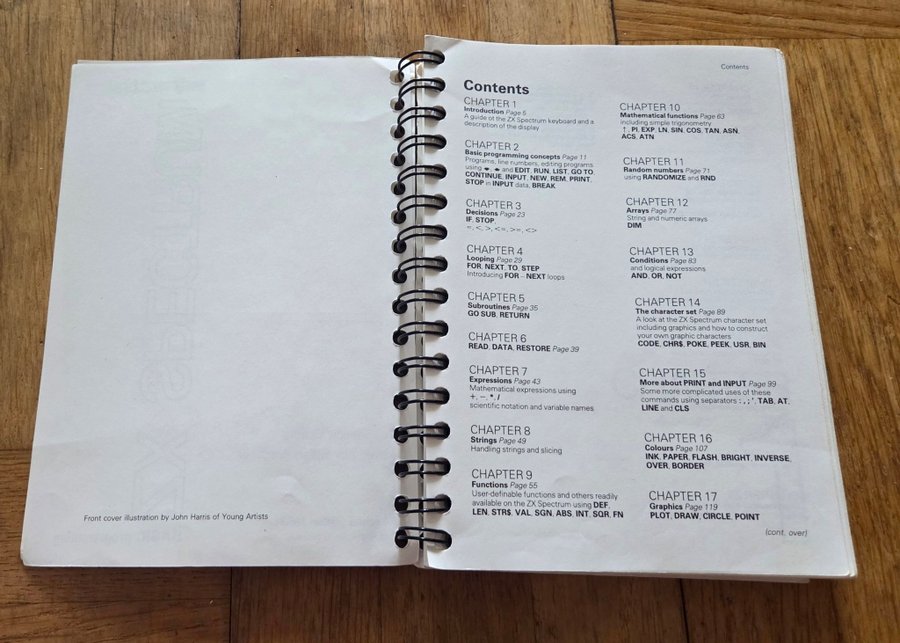 Front cover illustration by John Harris of Young Artists
Contents
Contents
CHAPTER 1
Introduction Page 5
A guide ot the ZX Spectrum keyboard and a
description of the display
CHAPTER 2
Basic programming concepts Page 11
Programs, line numbers, editing programs
using and EDIT, RUN, LIST, GO TO,
CONTINUE, INPUT, NEW, REM, PRINT,
STOP in INPUT data, BREAK
CHAPTER 3
Decisions Page 23
IF, STOP
=, <, >, <=, >=, <>
CHAPTER 4
Looping Page 29
FOR, NEXT, TO, STEP
Introducing FOR – NEXT loops
CHAPTER 5
Subroutines Page 35
GO SUB, RETURN
CHAPTER 6
READ, DATA, RESTORE Page 39
CHAPTER 7
Expressions Page 43
Mathematical expressions using
+, –, *, /
scientific notation and variable names
CHAPTER 8
Strings Page 49
Handling strings and slicing
CHAPTER 9
Functions Page 55
User-definable functions and others readily
available on the ZX Spectrum using DEF,
LEN, STR$, VAL, SGN, ABS, INT, SQR, FN
CHAPTER 10
Mathematical functions Page 63
including simple trigonometry
↑, PI, EXP, LN, SIN, COS, TAN, ASN,
ACS, ATN
CHAPTER 11
Random numbers Page 71
using RANDOMIZE and RND
CHAPTER 12
Arrays Page 77
String and numeric arrays
DIM
CHAPTER 13
Conditions Page 83
and logical expressions
AND, OR, NOT
CHAPTER 14
The character set Page 89
A look at the ZX Spectrum character set
including graphics and how to construct
your own graphic characters
CODE, CHR$, POKE, PEEK, USR, BIN
CHAPTER 15
More about PRINT and INPUT Page 99
Some more complicated uses of these
commands using separators : , ; ', TAB, AT,
LINE and CLS
CHAPTER 16
Colours Page 107
INK, PAPER, FLASH, BRIGHT, INVERSE,
OVER, BORDER
CHAPTER 17
Graphics Page 119
PLOT, DRAW, CIRCLE, POINT
(cont. over)